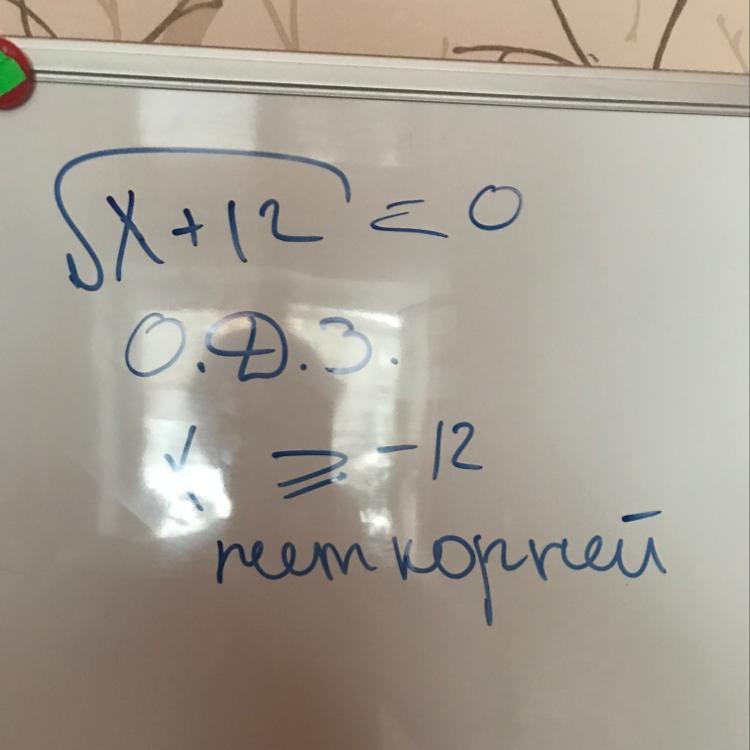 √x+12 < 0
О.Д.З.
x ≥ -12
нет корней